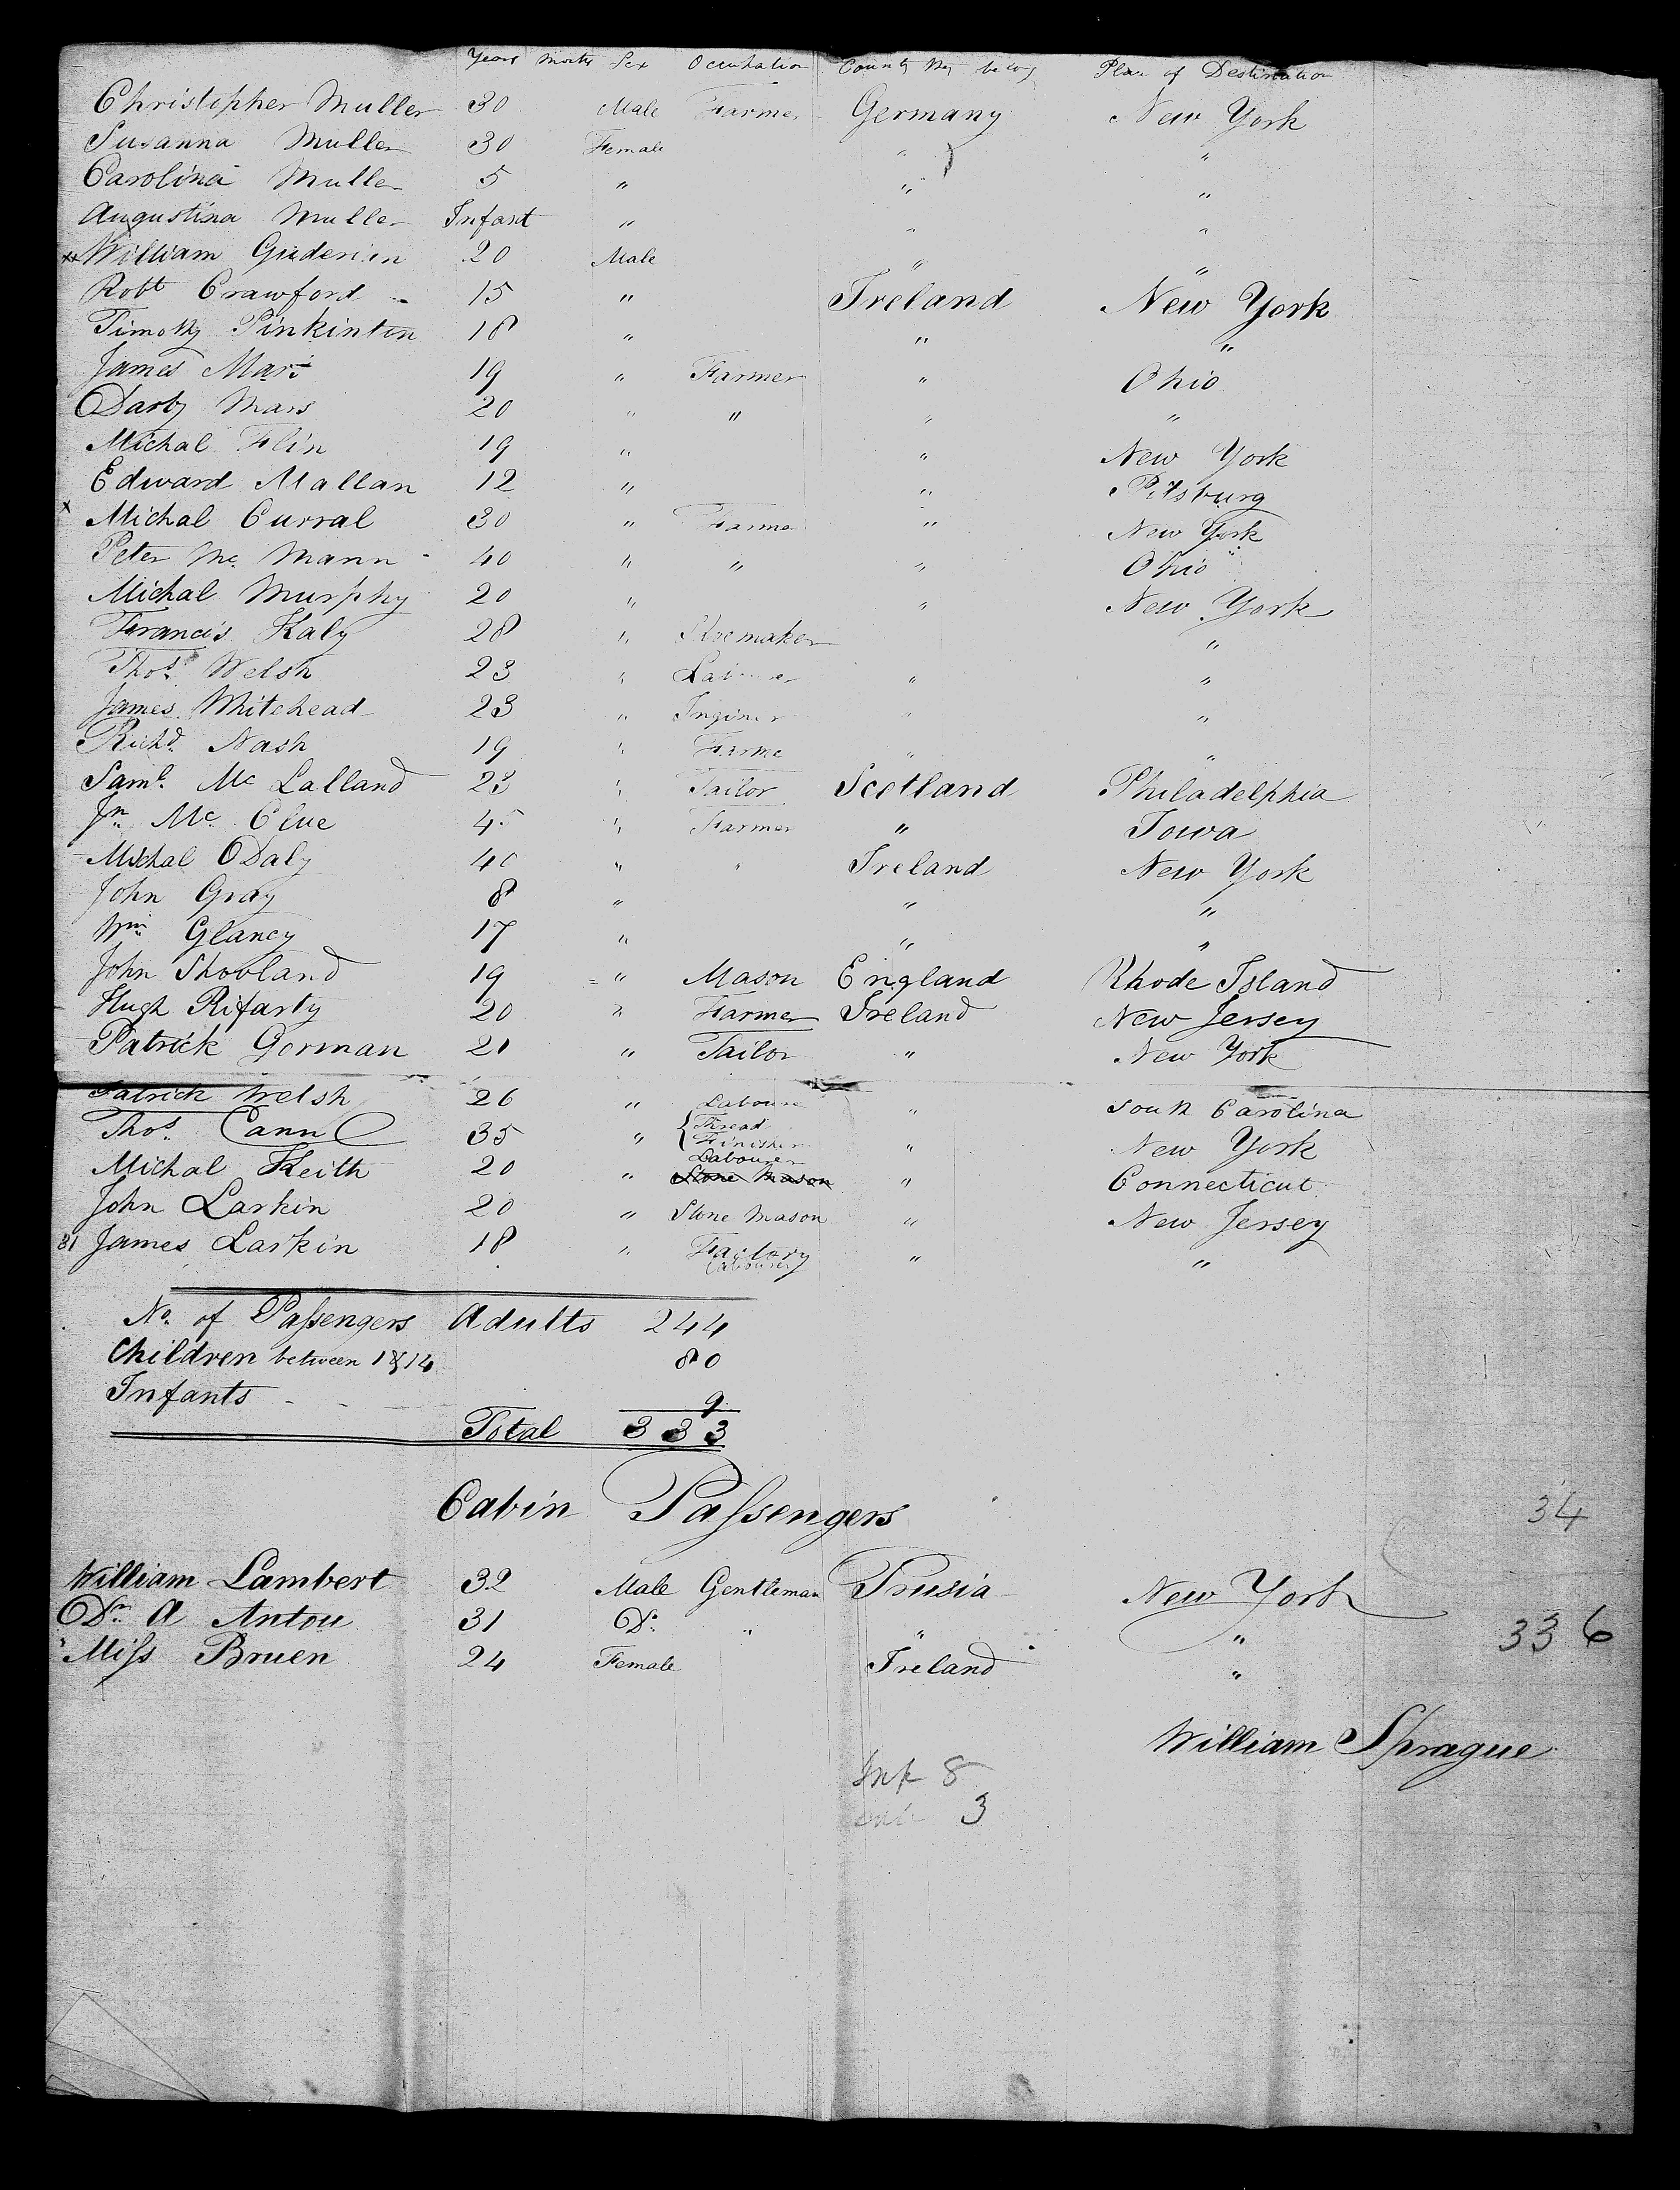 Years Months Sex Occupation County they belong Place of Destination
Christopher Muller 30 Male Farmer Germany New York
Susanna Muller 30 Female " "
Carolina Muller 5 " " "
Augustina Muller Infant " " "
William Guderian 20 Male " "
Robt Crawford 15 " Ireland New York
Timothy Pinkinton 18 " " "
James Mars 19 " Farmer " Ohio
Darby Mars 20 " " " "
Michal Flin 19 " " New York
Edward Mallan 12 " " Pitsburg
x Michal Curral 30 " Farmer " New York
Peter Mc Mann 40 " " " Ohio
Michal Murphy 20 " " New York
Francis Kaly 28 " Shoemaker "
Thos Welsh 23 " Labourer " "
James Whitehead 23 " Inginer " "
Richd Nash 19 " Farme " "
Saml Mc Lalland 23 " Tailor Scotland Philadelphia
Jn Mc Clue 45 " Farmer " Iowa
Michal ODaly 40 " " Ireland New York
John Gray 8 " " "
Wm Glancy 17 " " "
John Shovland 19 " Mason England Rhode Island
Hugh Rifarty 20 " Farmer Ireland New Jersey
Patrick Gorman 21 " Tailor " New York
Patrick Welsh 26 " Laboure " South Carolina
Thos Cann 35 " { Thread Finisher " New York
Michal Keith 20 " Labourer Stone Mason " Connecticut
John Larkin 20 " Stone Mason " New Jersey
81 James Larkin 18 " Factory Labourer " "
No. of Passengers Adults 244
Children between 1 & 14 80
Infants 9
Total 333
Cabin Passengers
34
William Lambert 32 Male Gentleman Prusia New York
Dr. A Antou 31 Do. " " "
336
Miss Bruen 24 Female Ireland "
William Sprague
Inf 8
3